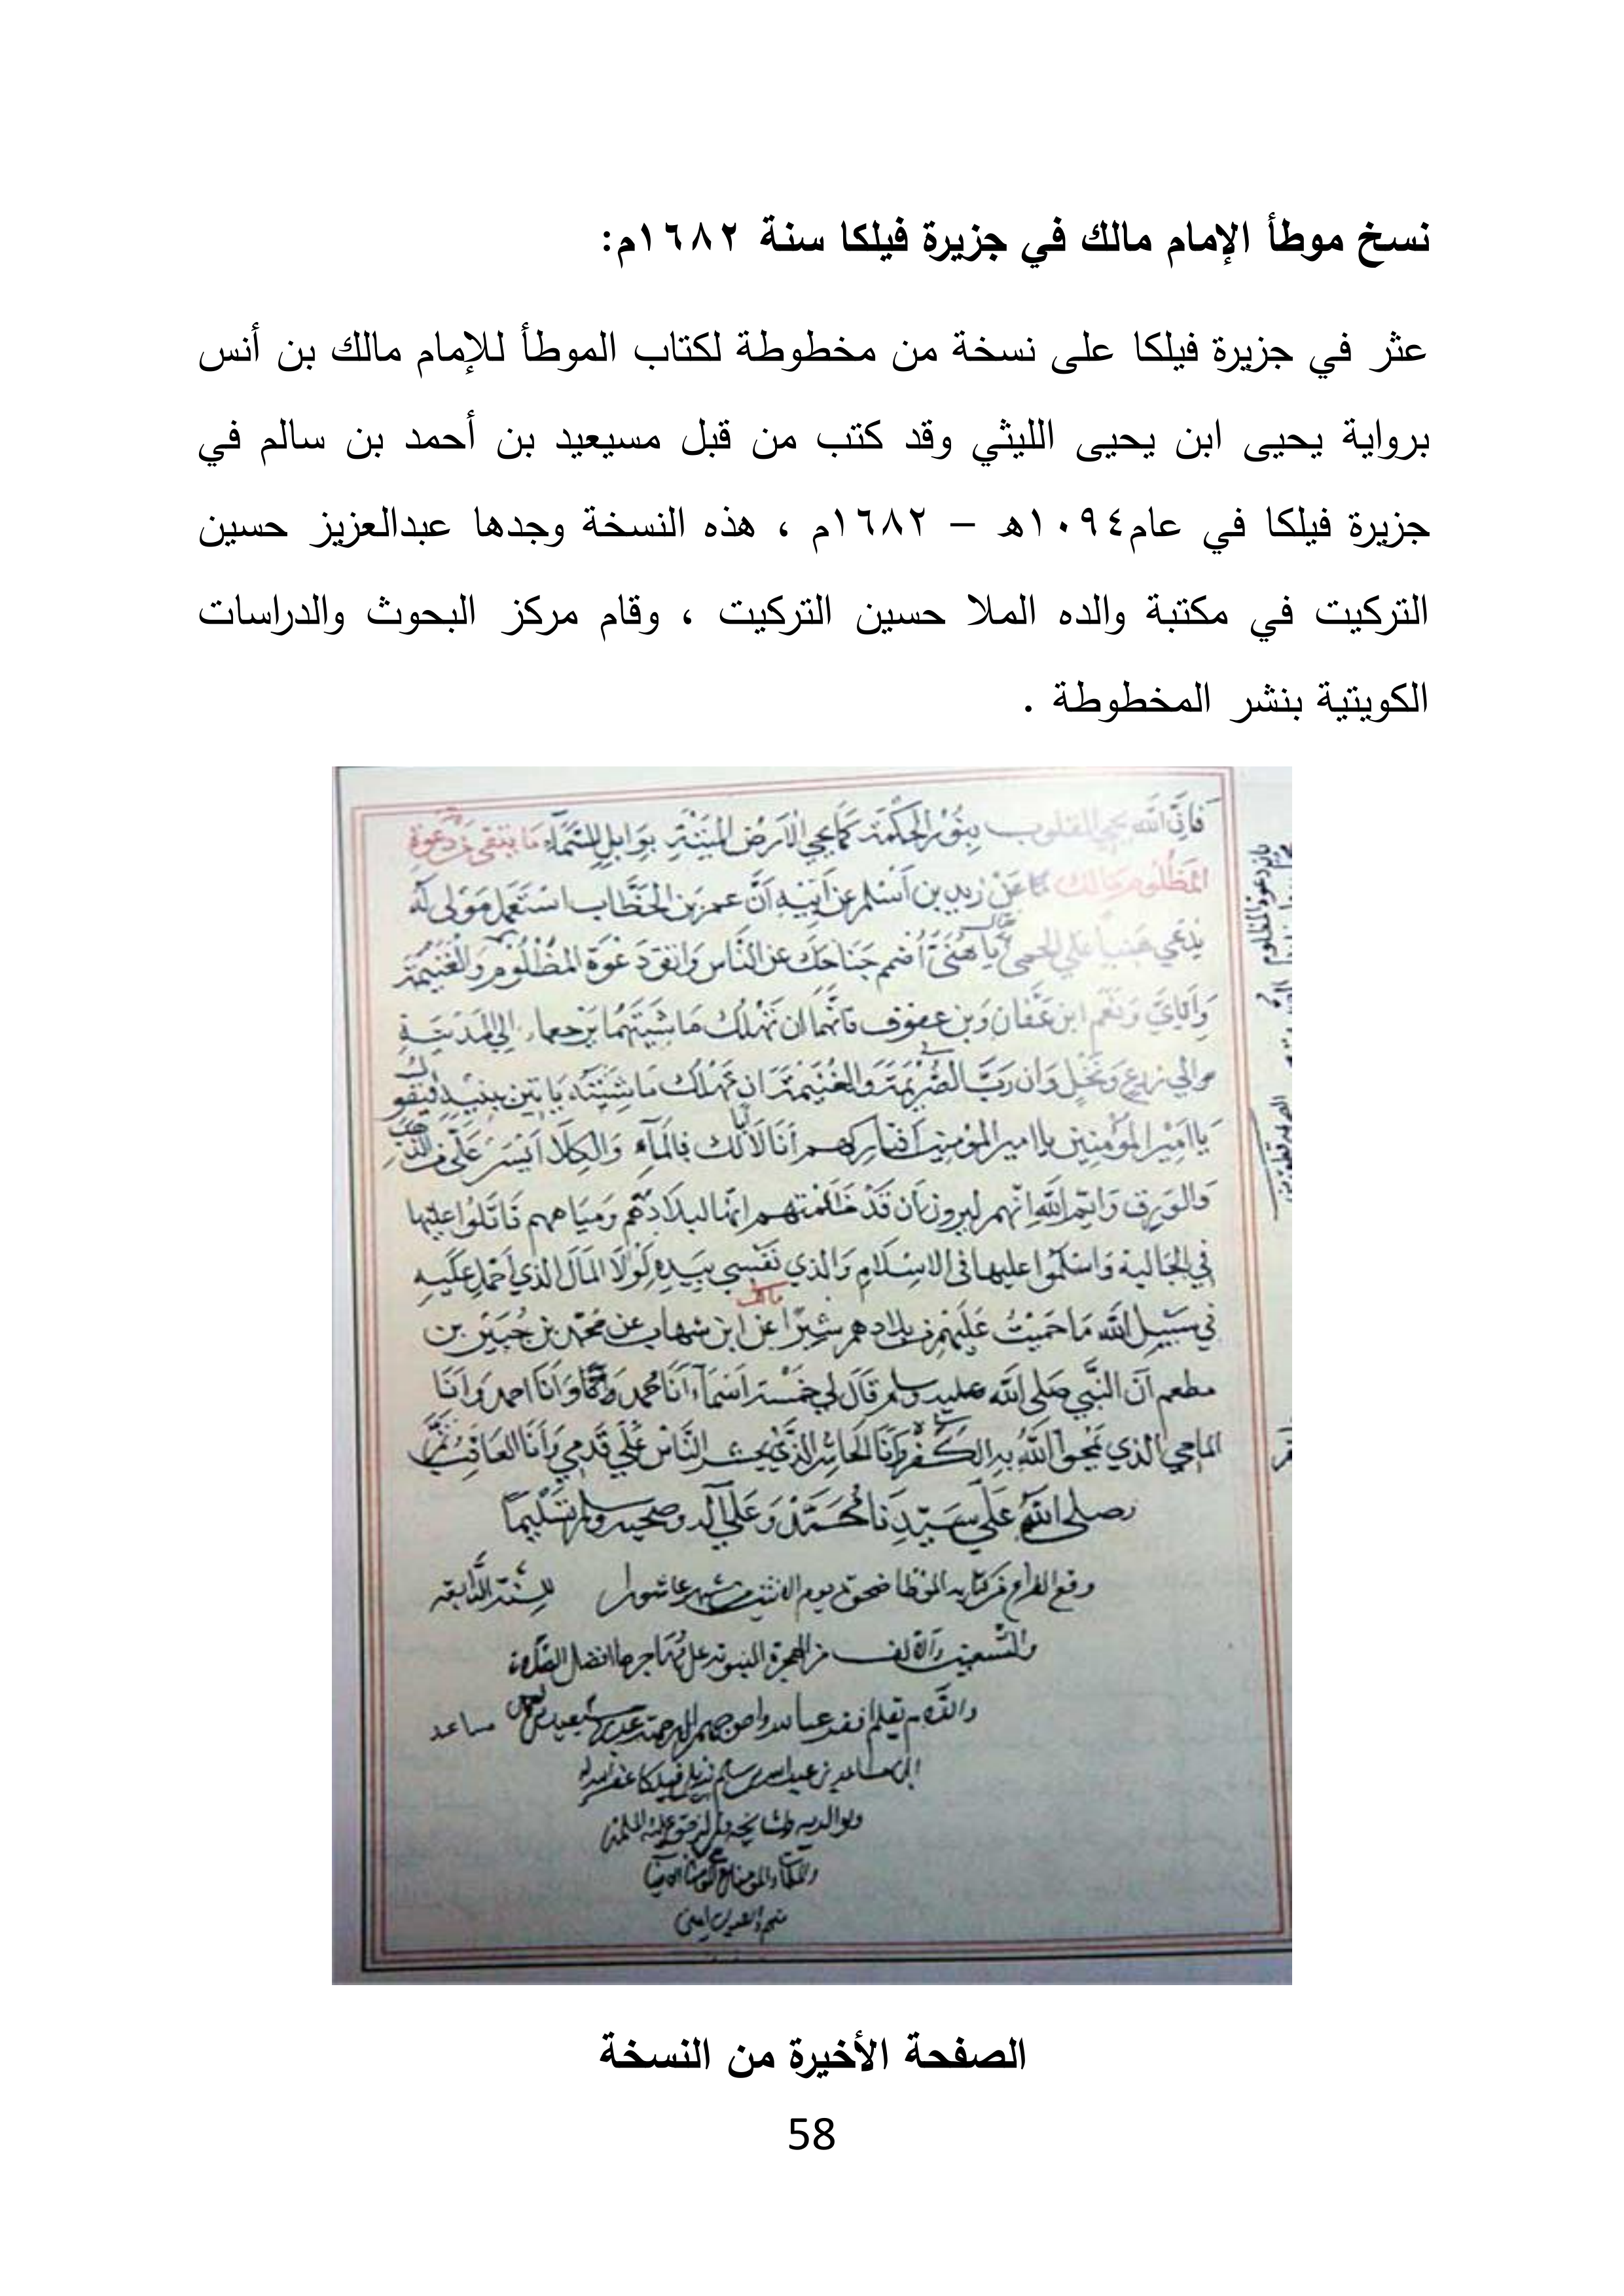 نسخ موطأ الإمام مالك في جزيرة فيلكا سنة ١٦٨٢م:
عثر في جزيرة فيلكا على نسخة من مخطوطة لكتاب الموطأ للإمام مالك بن أنس
برواية يحيى ابن يحيى الليثي وقد كتب من قبل مسيعيد بن أحمد بن سالم في
جزيرة فيلكا في عام١٠٩٤ه – ١٦٨٢م ، هذه النسخة وجدها عبدالعزيز حسين
التركيت في مكتبة والده الملا حسين التركيت ، وقام مركز البحوث والدراسات
الكويتية بنشر المخطوطة .
فَإِنَّ اللَّهَ يحيي القلوب بِنُورِ الحِكْمَة كَمَا يحيي الأَرْضَ المَيْتَة بِوَابِلِ السَّمَآءِ مَا يتقى مِن دَعْوَةِ
المَظْلُومِ مالك عَنْ زيد بن أَسْلم عن أَبِيهِ أَنَّ عمر بن الخَطَّاب اسْتَعْمَلَ مَوْلى لَه
يُدْعى هنيا على الحمى يا هُنَيّ أضمم جَنَاحَكَ عن النَّاس وَاتق دَعْوَةَ المَظْلُوم وَالغنيمة
وَإيايَ وَنَعَم ابن عَفَّان وَبن عوف فَإنهما ان تَهْلك مَاشِيَتهُمَا يَرجعا إلى المَدِينَةِ
والى زرع وَنَخْل وَان رَبَّ الصُّرَيمَة وَالغُنَيمَة ان تَهْلك مَاشِيَته يَاتِينى بِبَنِيهِ فَيَقُول
يا امير المُؤْمِنِين يا امير المؤمنين افتاركهم أَنَا لَا أَبَا لَكَ فَالمَآءُ وَالكَلَا أَيْسَرُ عَلَيَّ من الذَّهَب
وَالوَرِق وَايم اللَّهِ إنهم ليرون أن قَدْ ظَلَمْتهم إنها لبلادهم وَمِيَاههم قَاتَلُوا عليها
في الجَاهلية وَاسْلموا عليها فى الاسْلَامِ وَالذي نَفْسِي بِيَدِهِ لَوْلا المَال الذي أحمل عَلَيهِ
في سَبِيل اللَّه مَا حَمَيْتُ عَلَيهم من بلادهم شِبْرًا مالك عن ابن شهاب عن مُحَمَّد بن جُبَيْر بن
مطعم أَنَّ النَّبي صلى الله عليه وسلم قَالَ لي خَمْسَة اَسْمَآء أَنَا مُحمد وَأَنَا احمد وَأَنَا
الماحي الذي يَمْحو اللَّهُ بِهِ الكُفْر وَأَنَا الحاشر الذي يحشر النَّاسُ عَلَى قَدَمي وَأَنَا العَاقِبُ
وصلى اللهُ عَلَى سَيِّدِنَا مُحَمَّد وَعَلَى آله وصحبه وسلم تَسْلِيمًا
وقع الفراغ من كتابة الموطا ضحوة يوم الاثنين من شهر عاشورا للسنة الرابعة
والتسعين والالف من الهجرة النبوية على مهاجرها افضل الصلاة
والسلام بقلم افقر عباد الله واحوجهم الى رحمة مسيعيد بن مساعد
بن سالم نزيل فيلكا غفر الله له
ولوالديه ولمشايخه
الصفحة الأخيرة من النسخة
58